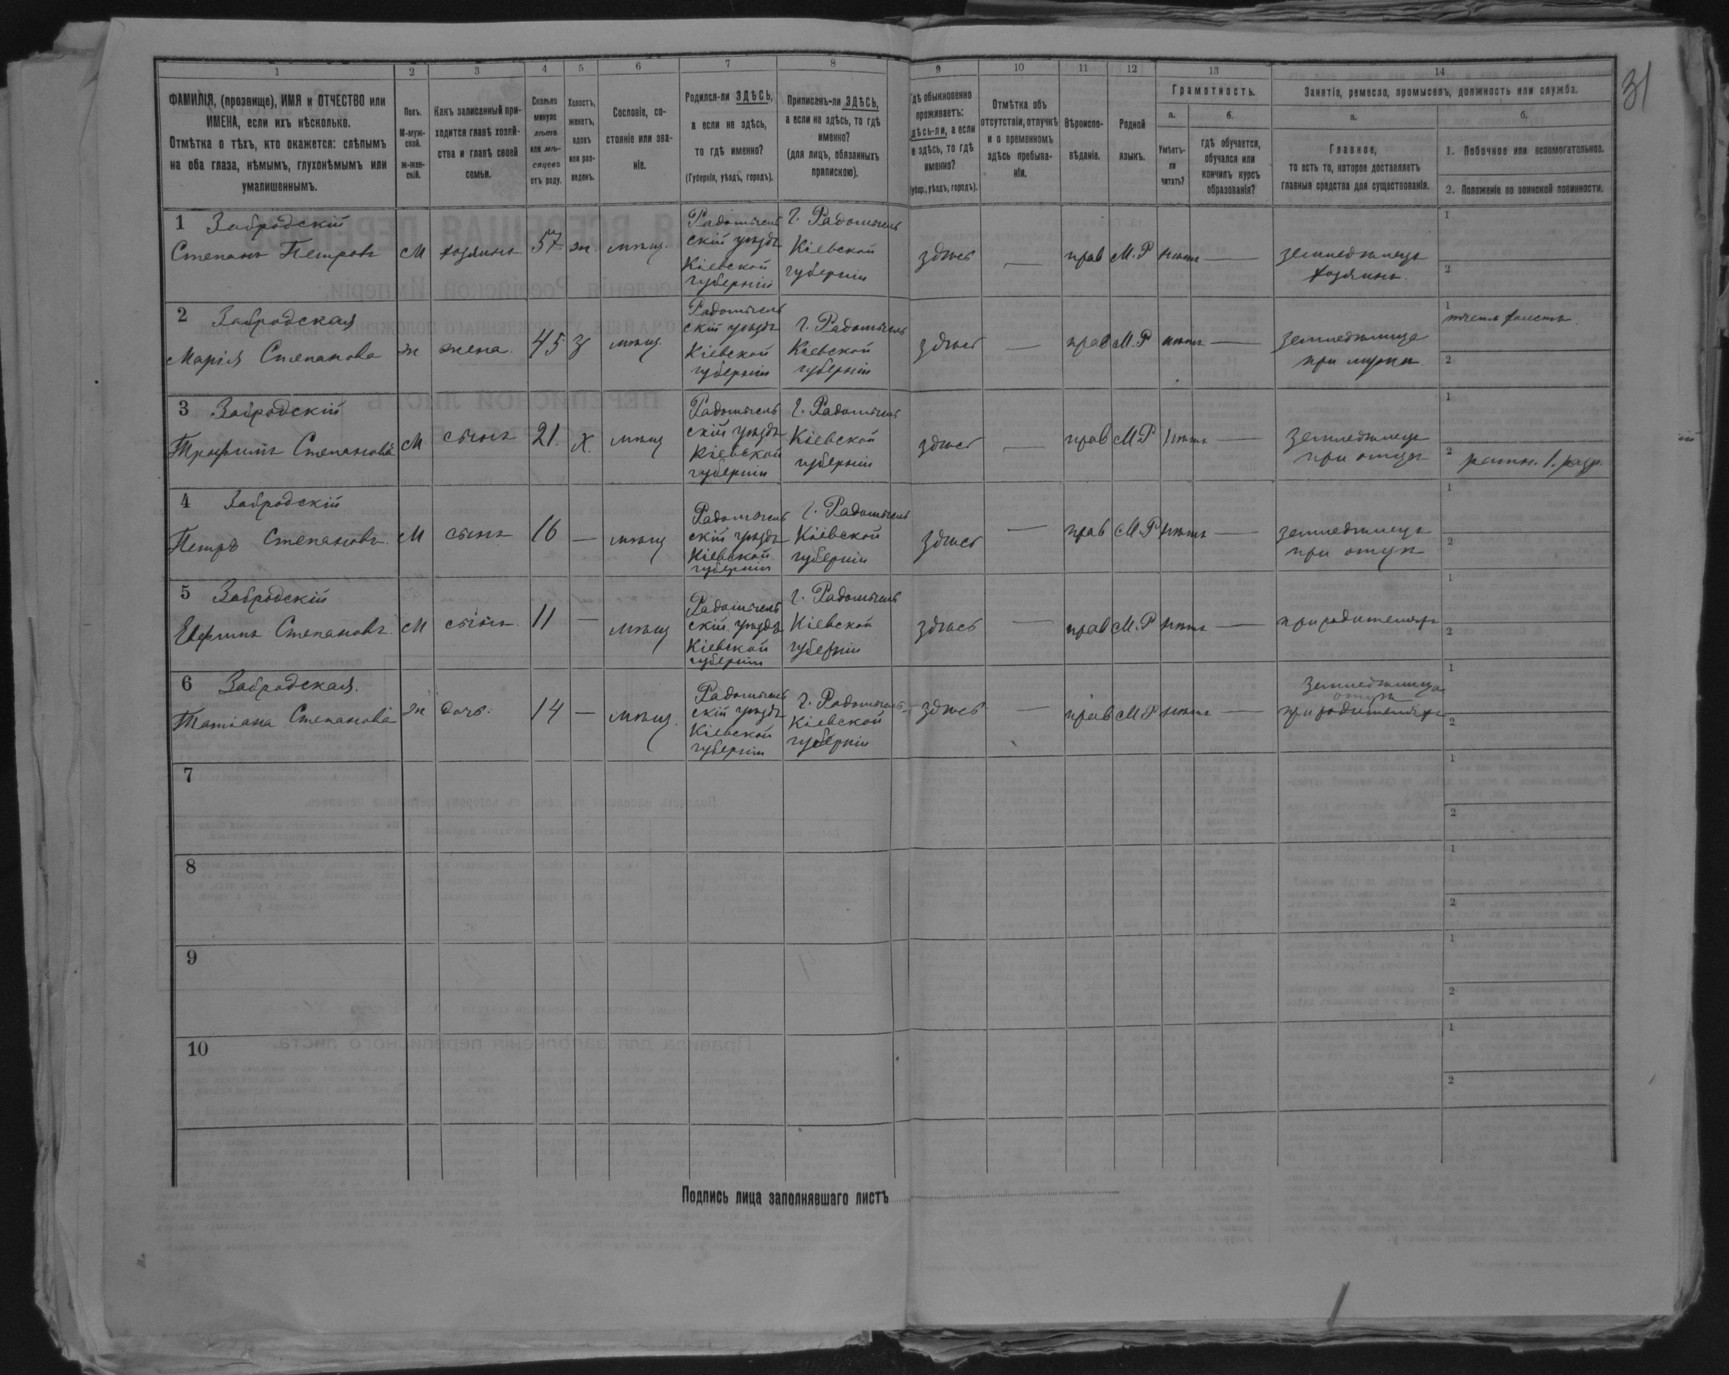 31
1 2 3 4 5 6 7 8 9 10 11 12 13 14
ФАМИЛІЯ, (прозвище), ИМЯ и ОТЧЕСТВО или
ИМЕНА, если ихъ нѣсколько.
Отмѣтка о тѣхъ, кто окажется: слѣпымъ
на оба глаза, нѣмымъ, глухонѣмымъ или
умалишеннымъ.
Полъ.
М-муж-
ской.
ж-жен-
скій.
Какъ записанный при-
ходится главѣ хозяй-
ства и главѣ своей
семьи.
Сколько
минуло
лѣтъ
или мѣ-
сяцевъ
отъ роду.
Холостъ,
женатъ,
вдовъ
или раз-
веденъ.
Сословіе, со-
стояніе или зва-
ніе.
Родился-ли ЗДѢСЬ,
а если не здѣсь,
то гдѣ именно?
(Губернія, уѣздъ, городъ).
Приписанъ-ли ЗДѢСЬ,
а если не здѣсь, то гдѣ
именно?
(для лицъ, обязанныхъ
припискою).
гдѣ обыкновенно
проживаетъ:
здѣсь-ли, а если
не здѣсь, то гдѣ
именно?
(губер., уѣздъ, городъ).
Отмѣтка объ
отсутствіи, отлучкѣ
и о временномъ
здѣсь пребыва-
ніи.
Вѣроиспо-
вѣданіе.
Родной
языкъ.
Грамотность.
а.
Умѣетъ-
ли
читать?
б.
гдѣ обучается,
обучался или
кончилъ курсъ
образованія?
Занятіе, ремесло, промыселъ, должность или служба.
а.
Главное,
то есть то, которое доставляетъ
главныя средства для существованія.
б.
1. Побочное или вспомогательное.
2. Положеніе по воинской повинности.
1 Забродскій
Степанъ Петровъ М хозяинъ 57 ж. мѣщ.
Радомысль
скій уѣздъ
Кіевской
губерніи
г. Радомысль
Кіевской
губерніи
здѣсь — прав М.Р нѣтъ —
земледѣлецъ
хозяинъ.
1
2
2 Забродская
Марія Степанова ж жена. 45 з мѣщ.
Радомысль
скій уѣздъ
Кіевской
губерніи
г. Радомысль
Кіевской
губерніи
здѣсь — прав М.Р нѣтъ —
земледѣлица
при мужѣ
1
2
3 Забродскій
Трофимъ Степановъ М сынъ 21. х. мѣщ
Радомысль
скій уѣздъ
Кіевской
губерніи
г. Радомысль
Кіевской
губерніи
здѣсь — прав М.Р нѣтъ —
земледѣлецъ
при отцѣ
1
2 ратн. 1. разр.
4 Забродскій
Петръ Степановъ. М сынъ 16 — мѣщ
Радомысль
скій уѣздъ
Кіевской
губерніи
г. Радомысль
Кіевской
губерніи
здѣсь — прав М.Р нѣтъ —
земледѣлецъ
при отцѣ
1
2
5 Забродскій
Степановъ. М сынъ. 11 — мѣщ
Радомысль
скій уѣздъ
Кіевской
губерніи
г. Радомысль
Кіевской
губерніи
здѣсь — прав М.Р нѣтъ —
при родителяхъ
1
2
6 Забродская.
Татіана Степанова ж дочь. 14 — мѣщ.
Радомысль
скій уѣздъ
Кіевской
губерніи
г. Радомысль
Кіевской
губерніи
здѣсь — прав М.Р нѣтъ —
Земледѣлица
отцѣ
при родителяхъ
1
2
7
1
2
8
1
2
9
1
2
10
1
2
Подпись лица заполнявшаго листъ